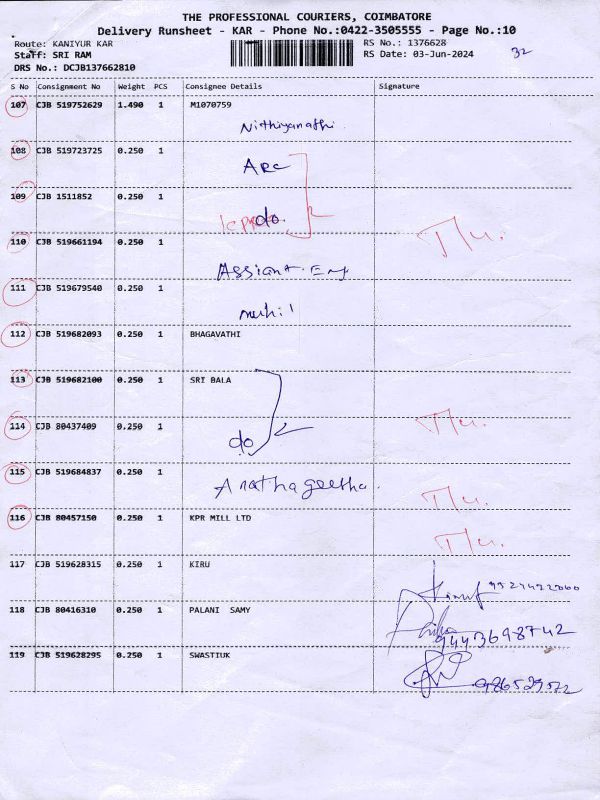 THE PROFESSIONAL COURIERS, COIMBATORE
Delivery Runsheet - KAR - Phone No.:0422-3505555 - Page No.:10
Route: KANIYUR KAR RS No.: 1376628
Staff: SRI RAM RS Date: 03-Jun-2024 32
DRS No.: DCJB137662810
S No Consignment No Weight PCS Consignee Details Signature
107 CJB 519752629 1.490 1 M1070759
Nithiyanathi
108 CJB 519723725 0.250 1
ARC
109 CJB 1511852 0.250 1
do
110 CJB 519661194 0.250 1
Assiant. Eng
111 CJB 519679540 0.250 1
mukil
112 CJB 519682093 0.250 1 BHAGAVATHI
113 CJB 519682100 0.250 1 SRI BALA
114 CJB 80437409 0.250 1
do
115 CJB 519684837 0.250 1
Anathageetha.
116 CJB 80457150 0.250 1 KPR MILL LTD
117 CJB 519628315 0.250 1 KIRU
118 CJB 80416310 0.250 1 PALANI SAMY
9443698742
119 CJB 519628295 0.250 1 SWASTIUK